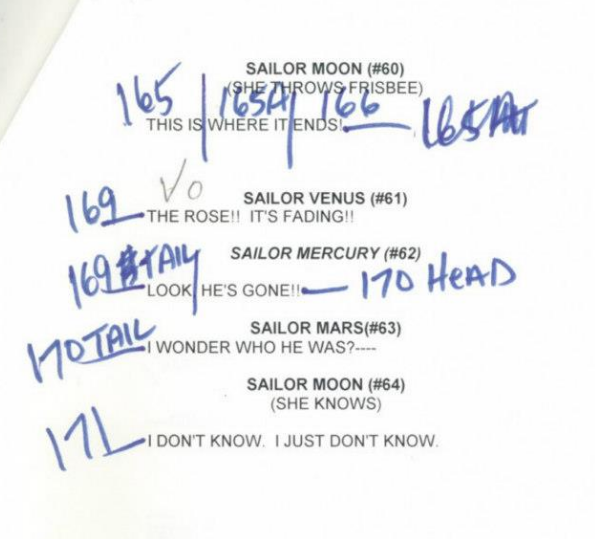 SAILOR MOON (#60)
(SHE THROWS FRISBEE)
165 165A 166
THIS IS WHERE IT ENDS!
VO
169 SAILOR VENUS (#61)
THE ROSE!! IT'S FADING!!
SAILOR MERCURY (#62)
169 TAIL
LOOK HE'S GONE!! 170 HEAD
SAILOR MARS(#63)
170 TAIL
I WONDER WHO HE WAS?----
SAILOR MOON (#64)
(SHE KNOWS)
171 I DON'T KNOW. I JUST DON'T KNOW.